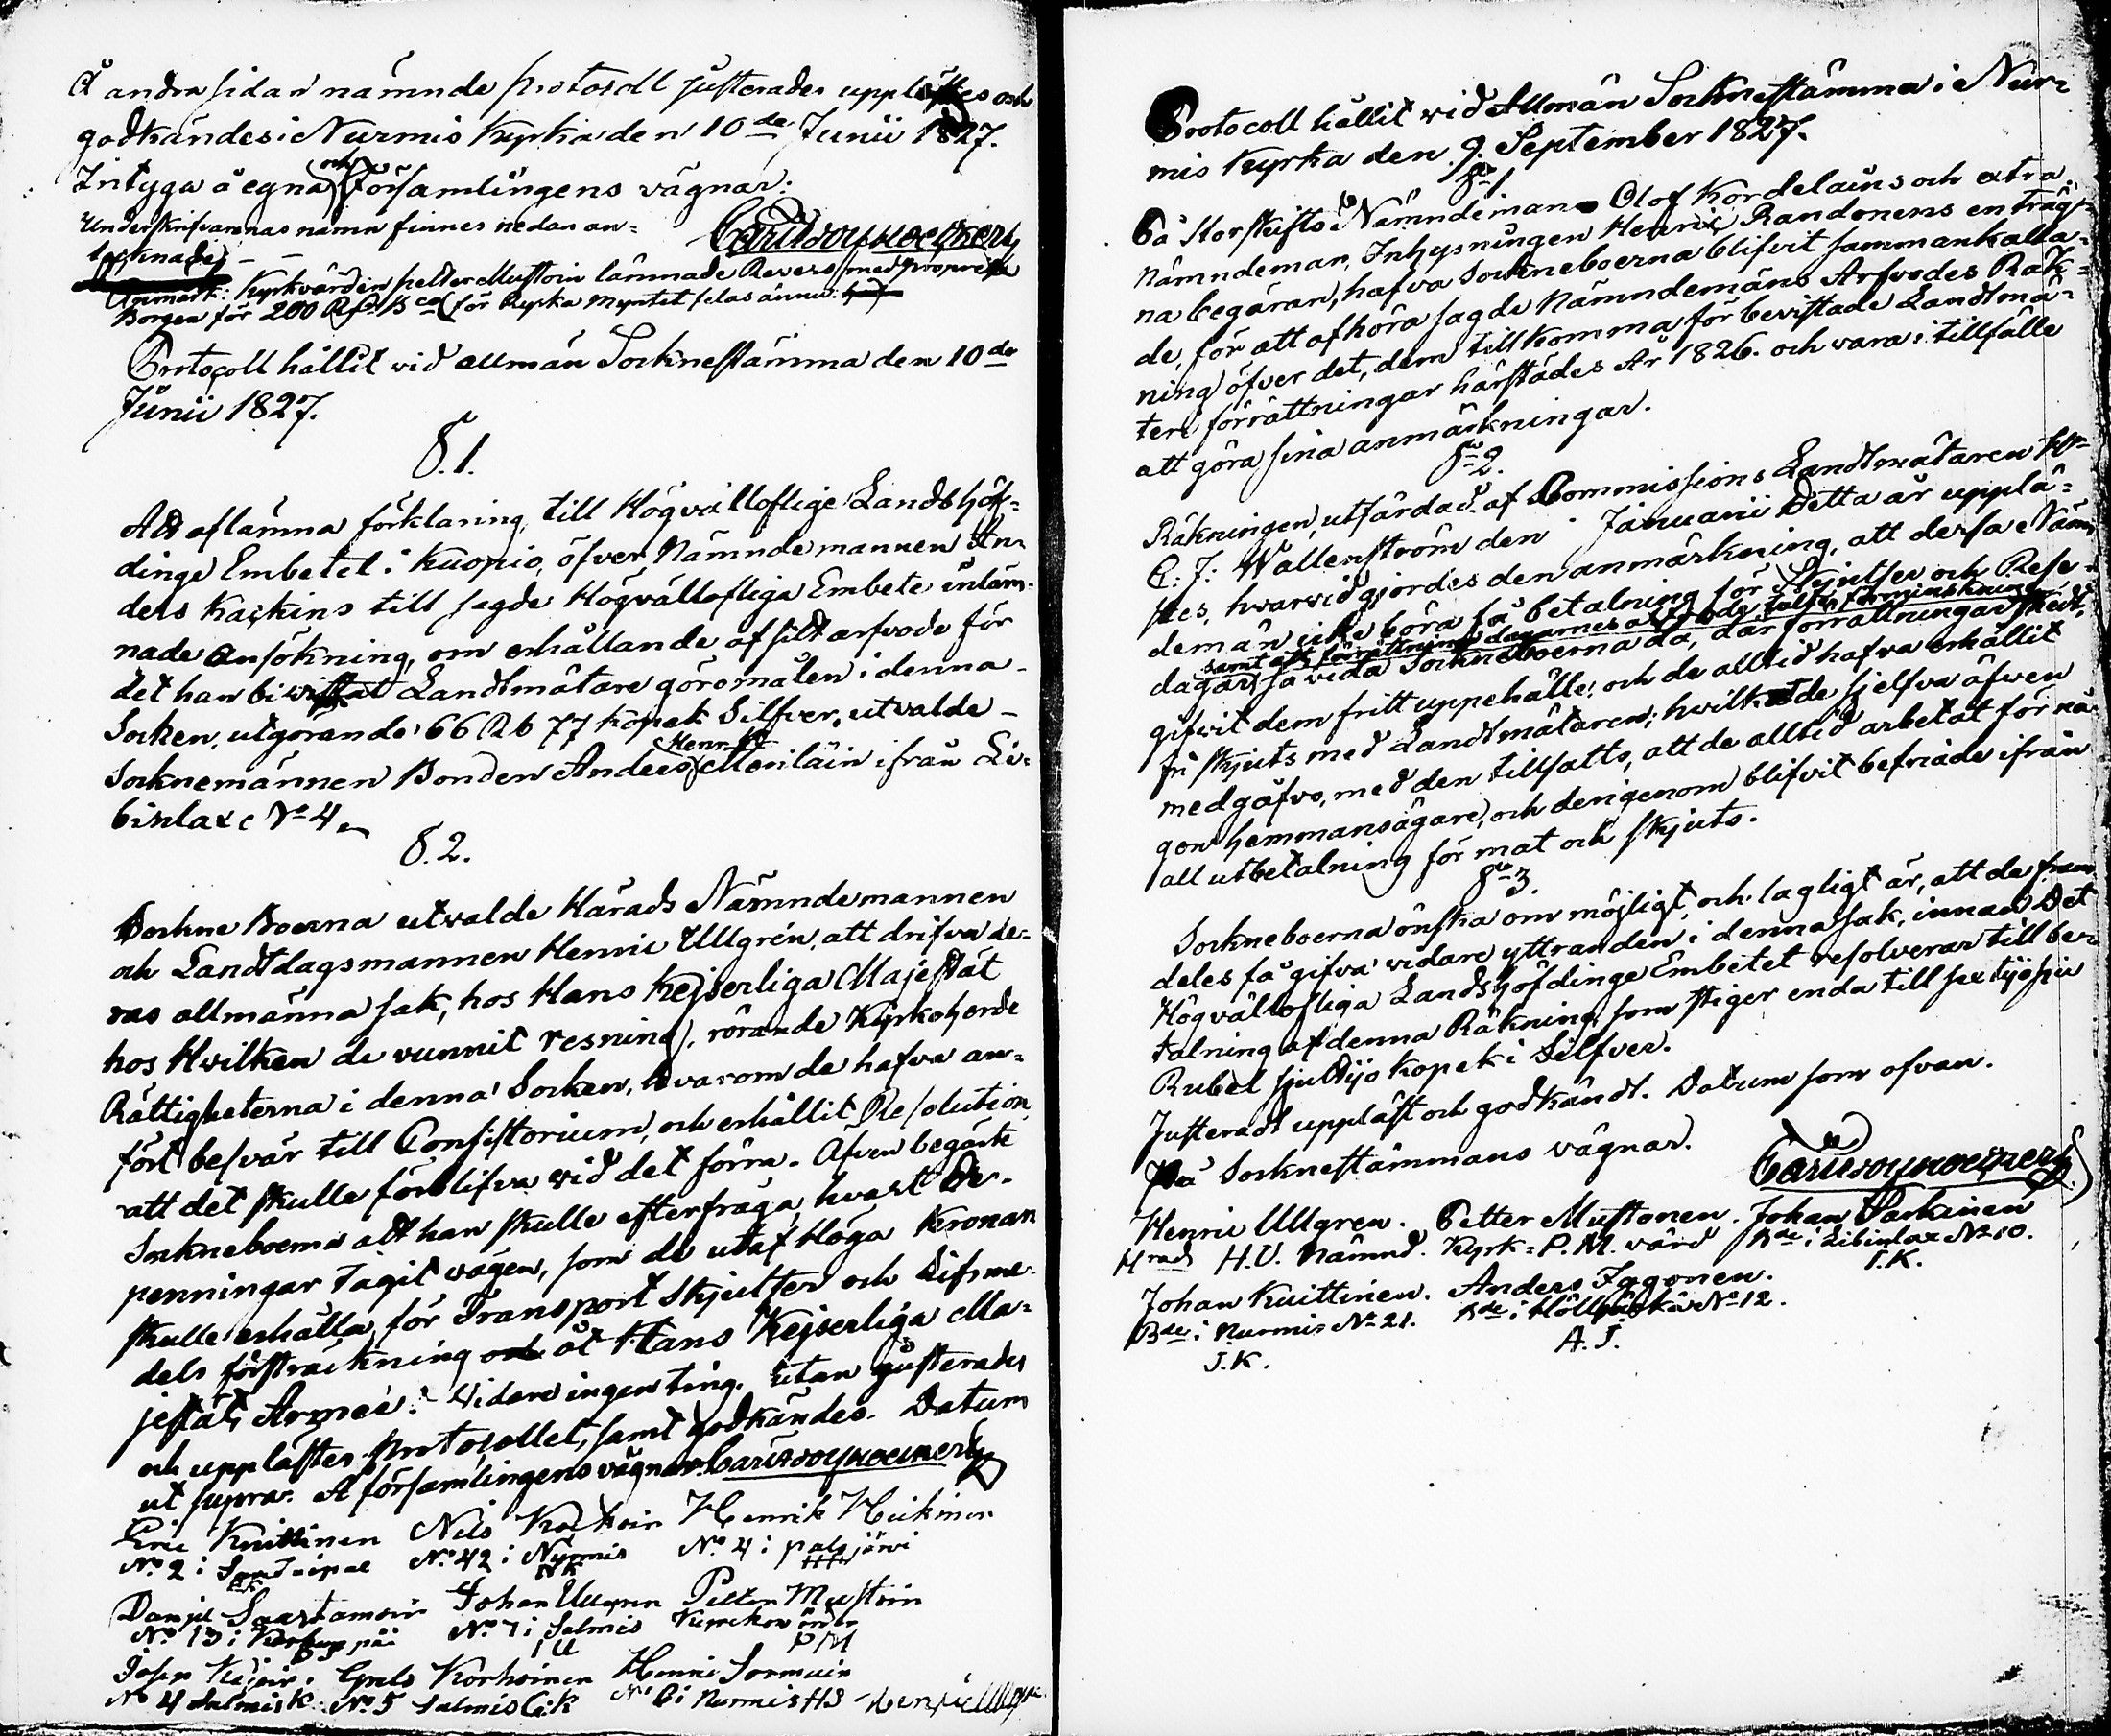 Å andra sidan nämnde protocoll justerades upplästes och
godkändes i Nurmis Kyrka den 10de Junii 1827.
Intyga å egna och Församlingens vägnar:
Underskrifvarnas namn finnes nedan an=
tecknade, - -
Anmärk: Kyrkvärden Petter Mustoin lämnade Revers med proprie
Borgen för 200 R Bco för Kyrka myntet felas ännu:
Protocoll hållit vid allmän Socknestämma den 10de
Junii 1827.
§. 1.
Att aflämna förklaring, till Högvälloflige Landshöf=
dinge Embetet i Kuopio, öfver Nämndemannen An=
ders Kackins till sagde Högvällofliga Embete inläm=
nade ansökning, om erhållande af sitt arfvode för
det han bivistat Landtmätare göromålen i denna
Socken, utgörande 66 Rb 77 kopek Silfver, utvalde
Socknemännen Bonden Anders Henriks Meriläin ifrån Li=
binlax No 4
§. 2.
Sockne Boerna utvalde Härads Nämndemannen
och Landtdagsmannen Henric Ullgrén, att drifva de=
ras allmänna sak, hos Hans Kejserliga Majestät
hos Hvilken de vunnit resning, rörande Kyrkoherde
Rättigheterna i denna Socken, hvarom de hafva an=
fört besvär till Consistorium, och erhållit Resolution,
att det skulle förblifva vid det förra. Äfven begärte
Sockneboerna att han skulle efterfråga, hvart De
penningar tagit vägen, som de utaf Höga Kronan
skulle erhålla, för Transport Skjutser och Lifsme=
dels försträckning och åt Hans Kejserliga Ma=
jestäts Armée. Vidare ingenting, utan justerades
och upplästes protocollet, samt godkändes. Datum
ut supra. Å församlingens vägnar
Eric Kuittinen Nils Kackoin Henrik Heikinen
No 2 i No 42 i Nurmis No 4 i palojärvi
EK NK HH
Daniel Saastamoin Johan Ullgren Petter Mustoin
No 13 i No 7 i Salmis Kyrckovärder
IU PM
Johan Grels Korhoinen Henric Sormuin
No 4 Salmis K No 5 Salmis G:K No 6 i Nurmis HS Henric Ullgren
Protocoll hållit vid Allmän Socknestämma i Nur=
mis Kyrka den 9. September 1827.
§ 1
På Storskifts Nämndeman Olof Kordelains och extra
Nämndeman, Inhysningen Henric Randonens enträg=
na begäran, hafva Sockneboerna blifvit sammankalla=
de, för att afhöra sagde Nämndemäns Arfvodes Räk=
ning öfver det, dem tillkomma för bevistade Landtmä=
teri förrättningar härstädes År 1826. och vara i tillfälle
att göra sina anmärkningar.
§ 2.
Räkningen, utfärdad af Commissions Landtmätaren Hr
C: J: Wallenström den Januarii Detta år upplä=
stes, hvarvid gjordes den anmärkning, att dessa Nämn
demän icke böra få betalning för Skjutser och Rese=
samt att förrättnings dagarnes arfvode tålte förminskning
dagar, så vida Sockneboerna då, där förrättningar skedt,
gifvit dem fritt uppehälle, och de alltid hafva erhållit
fri skjuts med Landtmätaren; hvilket de sjelfva äfven
medgåfvo, med den tillsatts, att de alltid arbetat för nå=
gon hemmansägare, och derigenom blifvit befriade ifrån
all utbetalning för mat och skjuts.
§ 3.
Sockneboerna önska om möjligt, och lagligt är, att de fram
deles få gifva vidare yttranden i denna sak, innan Det
Högvällofliga Landshöfdinge Embetet resolverar till be=
talning af denna Räkning, som stiger enda till sextijosju
Rubel sjuttijo kopek i Silfver.
Justeradt uppläst och godkändt. Datum som ofvan.
På Socknestämmans vägnar.
Henric Ullgren. Petter Mustonen. Johan Parkinen
Hrads H.U. Nämnd. Kyrk= P.M. värd Bde i Libinlax No 10.
I.K.
Johan Kuittinen. Anders Jggonen.
Bde i Nurmis No 21. Bde i Höljäkkä No 12.
J.K. A.J.